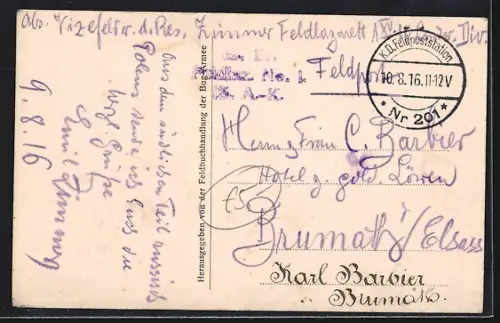 Abs. Vizefeldw. d. Res. Zimmer Feldlazarett 1 XV
Feldlaz. No. 1.
A.-K.
Feldpost
K.D. Feldpoststation
10.8.16. 11-12 V
* Nr 201 *
Aus dem südlichen Teil
Polens sende ich Euch die
herzl. Grüße
Emil Zimmer
9.8.16
Herausgegeben von der Feldbuchhandlung der Bug-Armee
Herrn u. Frau C. Barbier
Hotel z. gold. Löwen
Brumath/Elsass
Karl Barbier
Brumath.